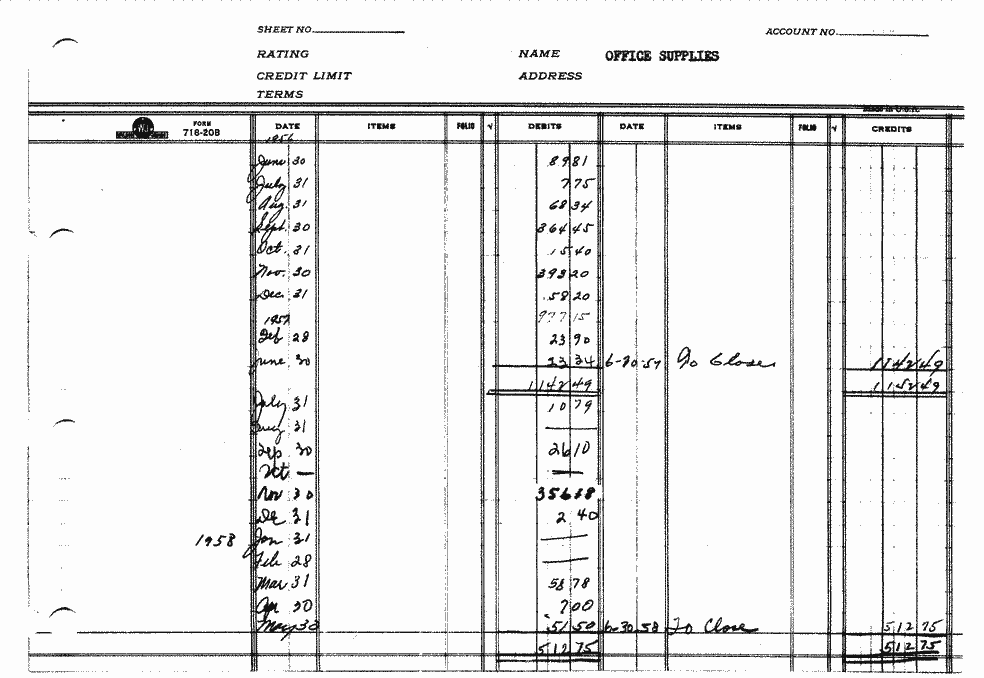 SHEET NO.
ACCOUNT NO.
RATING NAME OFFICE SUPPLIES
CREDIT LIMIT ADDRESS
TERMS
FORM
718-20B
DATE ITEMS FOLIO √ DEBITS DATE ITEMS FOLIO √ CREDITS
1956
June 30 89 81
July 31 7 75
Aug. 31 68 34
Sept. 30 364 45
Oct. 31 15 40
Nov. 30 393 20
Dec. 31 58 20
1957 997 15
Feb 28 23 90
June 30 23 34 6-30-57 To Close 1142 49
1142 49 1142 49
July 31 10 79
Aug 31 —
Sep 30 26 10
Oct — —
Nov 30 356 18
De 31 2 40
1958 Jan 31 —
Feb 28 —
Mar 31 58 78
Apr 30 7 00
May 30 51 50 6-30-58 To Close 512 75
512 75 512 75